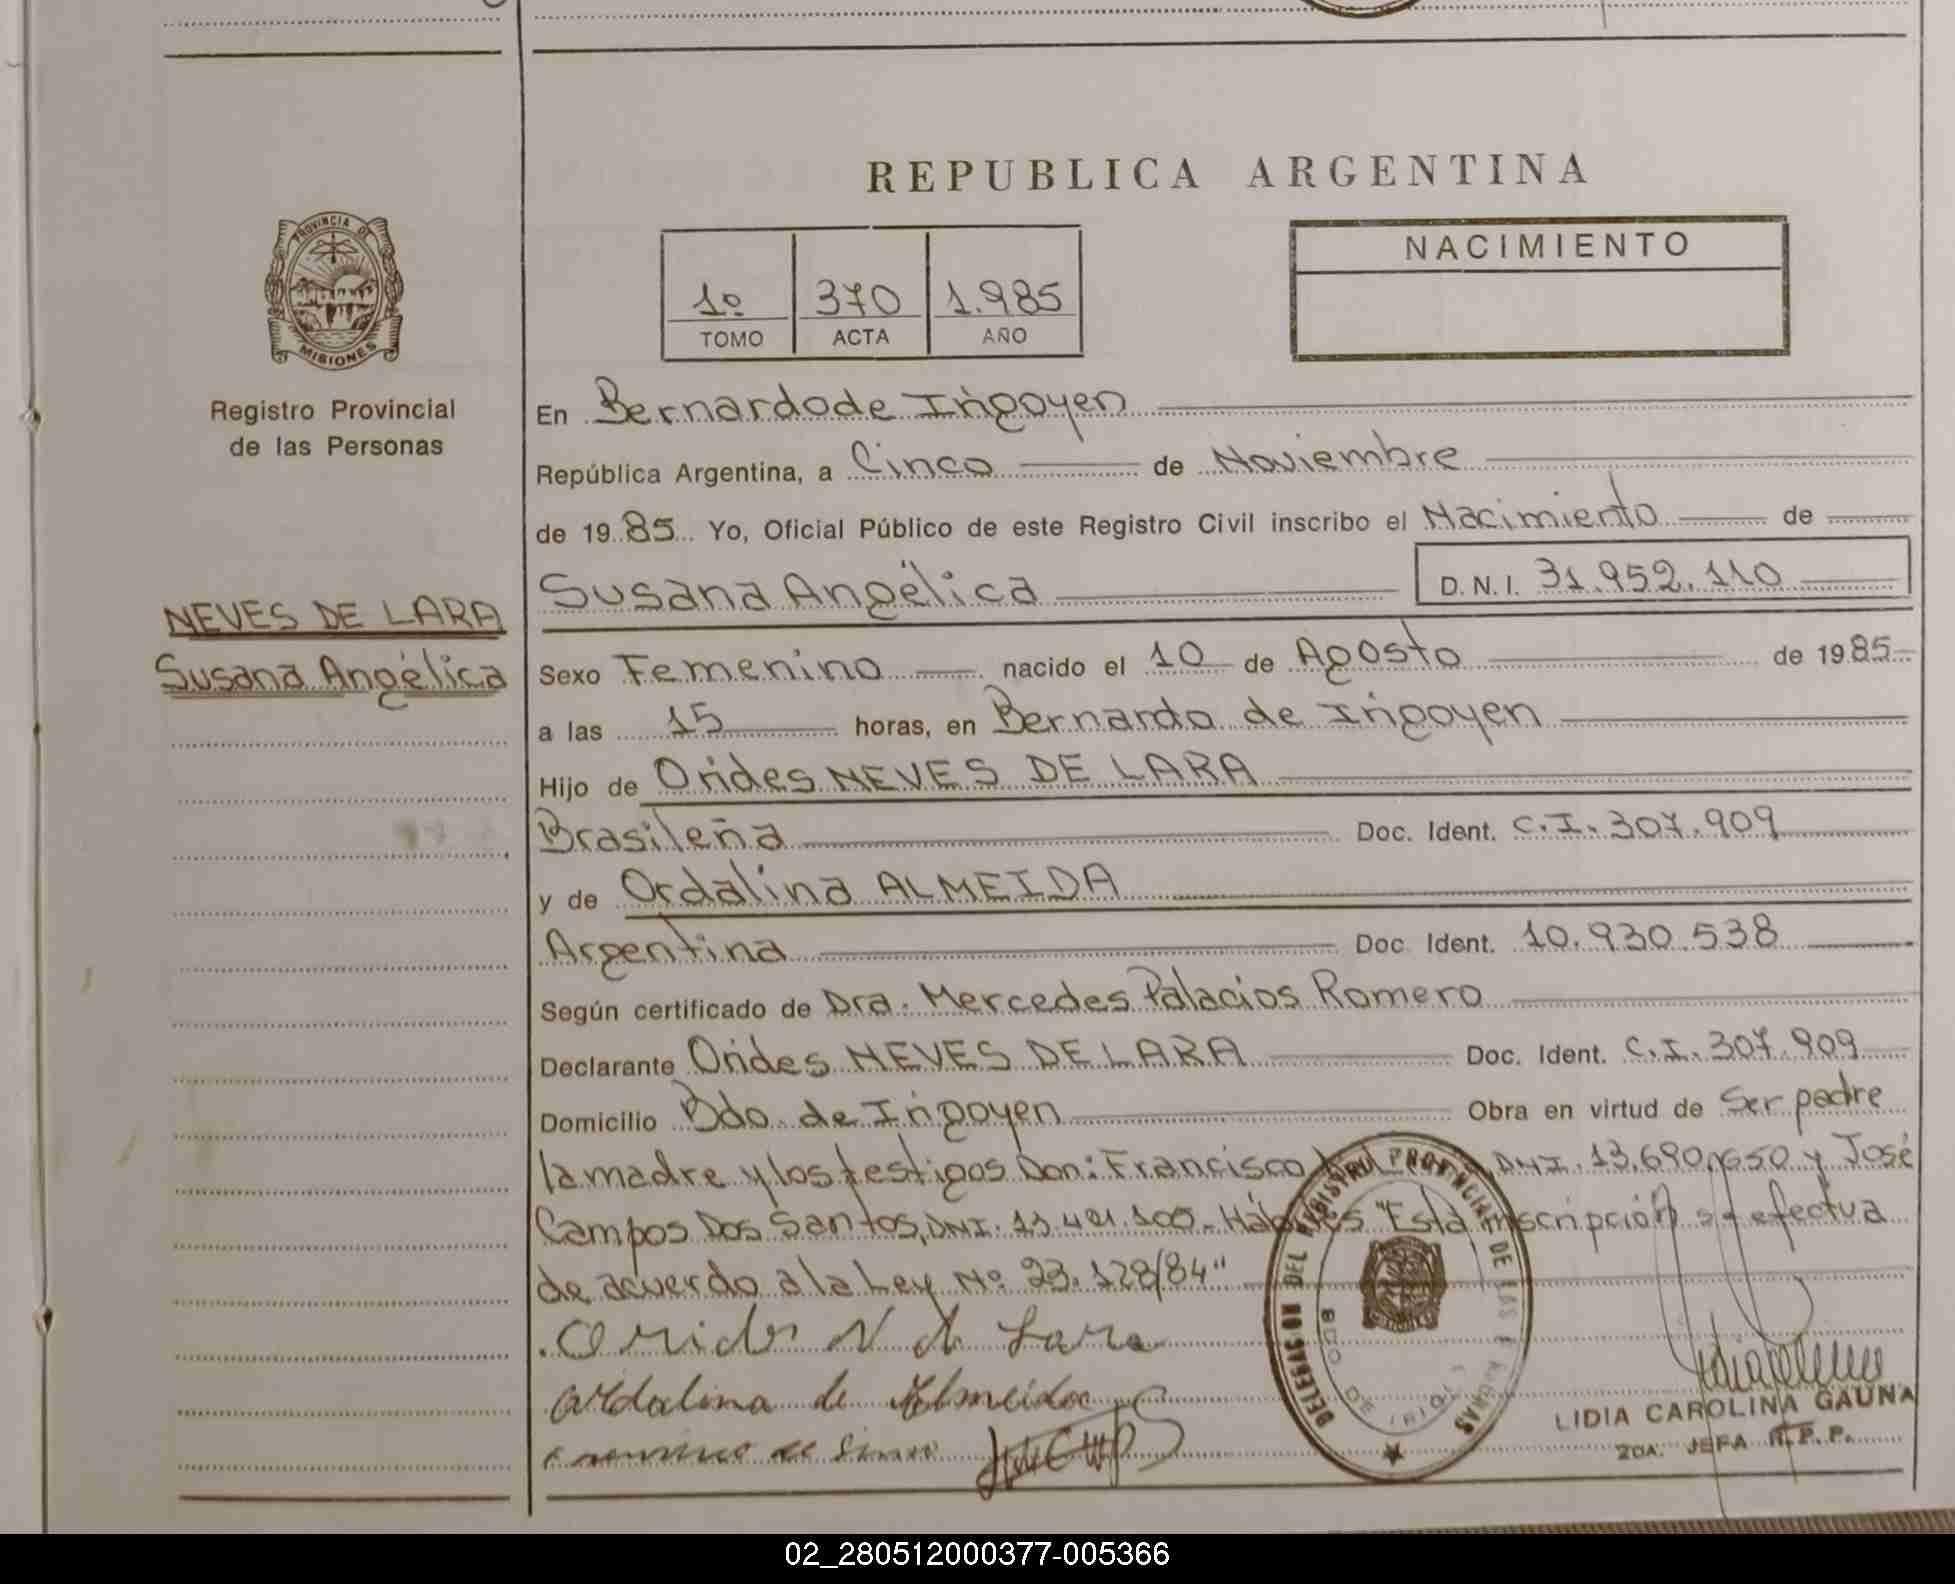 REPUBLICA ARGENTINA
PROVINCIA DE
MISIONES
Registro Provincial
de las Personas
NEVES DE LARA
Susana Angélica
1º 370 1.985
TOMO ACTA AÑO
NACIMIENTO
En Bernardo de Irigoyen
República Argentina, a Cinco de Noviembre
de 1985 Yo, Oficial Público de este Registro Civil inscribo el Nacimiento de
Susana Angélica D.N.I. 31.952.110
Sexo Femenino nacido el 10 de Agosto de 1985
a las 15 horas, en Bernardo de Irigoyen
Hijo de Orides NEVES DE LARA
Brasileña Doc. Ident. C.I. 307.909
y de Ordalina ALMEIDA
Argentina Doc. Ident. 10.930.538
Según certificado de Dra. Mercedes Palacios Romero
Declarante Orides NEVES DE LARA Doc. Ident. C.I. 307.909
Domicilio Bdo. de Irigoyen Obra en virtud de Ser padre
la madre y los testigos Don: Francisco DNI. 13.690.650 y José
Campos Dos Santos, DNI. Hábiles "Esta inscripción se efectua
de acuerdo a la Ley Nº 23.128/84"
Orides N d Lara
Ordalina de Almeida
DELEGACION DEL REGISTRO PROVINCIAL DE LAS PERSONAS
BDO DE IRIGOYEN
LIDIA CAROLINA GAUNA
2DA. JEFA R.P.P.
02_280512000377-005366